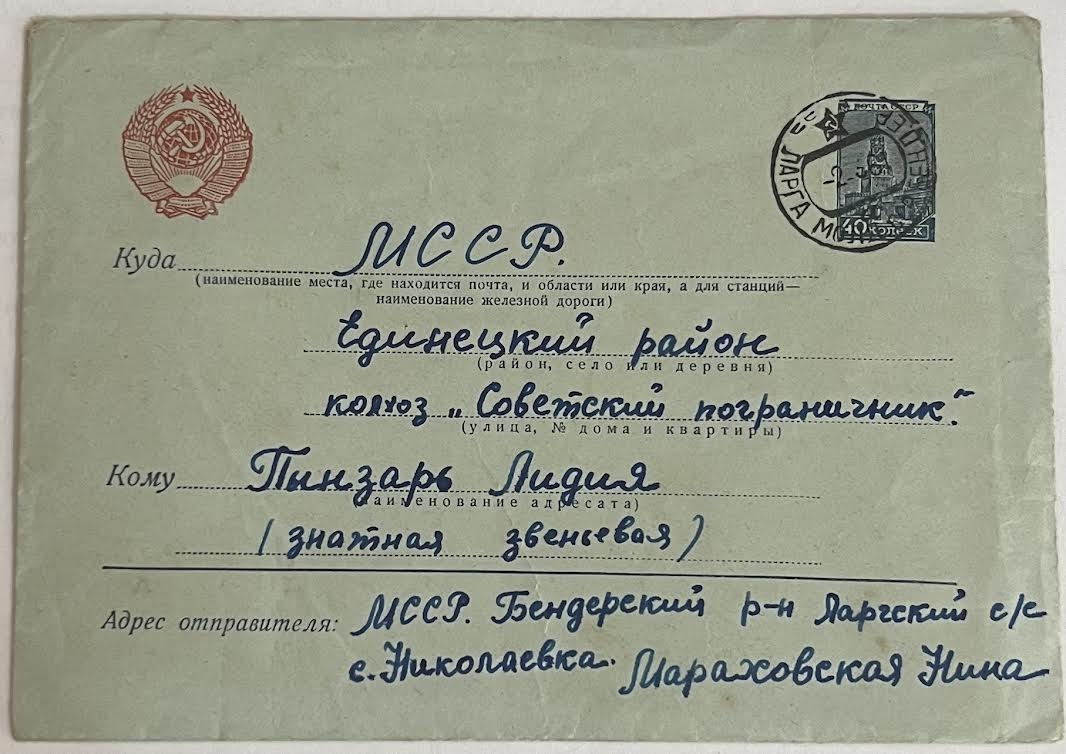 ПОЧТА СССР
ЛАРГА МОЛД
40 КОПЕЕК
Куда МССР.
(наименование места, где находится почта, и области или края, а для станций—
наименование железной дороги)
Единецкий район
(район, село или деревня)
колхоз „Советский пограничник".
(улица, № дома и квартиры)
Кому Пынзарь Лидия
(наименование адресата)
(знатная звеньевая)
Адрес отправителя: МССР. Бендерский р-н Ларгский с/с
с. Николаевка. Мараховская Нина